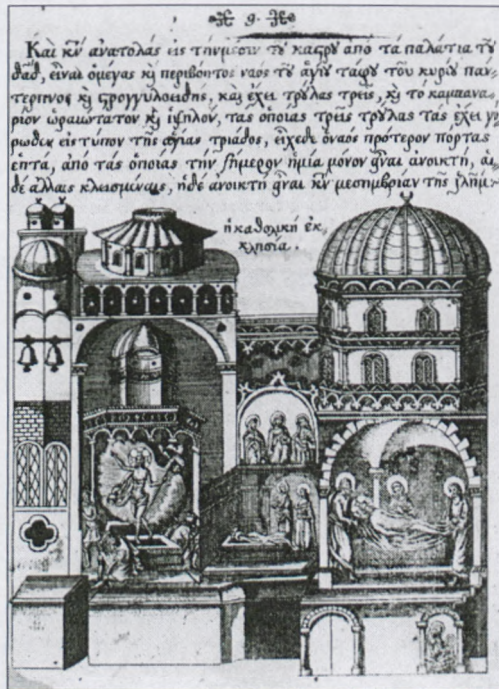 9.
Καὶ κỳ ἀνατολὰς εἰς τὴν μέσιν τȣ͂ κάςρȣ ἀπὸ τὰ παλάτια τȣ͂
δαδ, εἶναι ὁ μέγας κỳ περιβόητος ναὸς τȣ͂ ἁγίȣ τάφȣ τοῦ κυρίȣ πάν
τερπνος κỳ ςρογγυλοειδὴς, καὶ ἔχει τρȣ́λας τρεῖς, κỳ τὸ καμπανα
ριὸν ὡραιώτατον κỳ ὑψηλόν, τὰς ὁποίας τρεῖς τρȣ́λας τὰς ἔχει γυ
ρωθεν εἰς τύπον τῆς ἁγίας τριάδος, εἶχεδε ὁ ναὸς πρότερον πόρτας
ἑπτὰ, ἀπὸ τὰς ὁποίας τὴν σήμερον ἡ μία μόνον εἶναι ἀνοικτὴ, αἱ
δὲ ἄλλαις κλεισμέναις, ἡ δὲ ἀνοικτὴ εἶναι κỳ μεσημβρίαν τῆς
ἡ καθολικὴ ἐκ
κλησία.